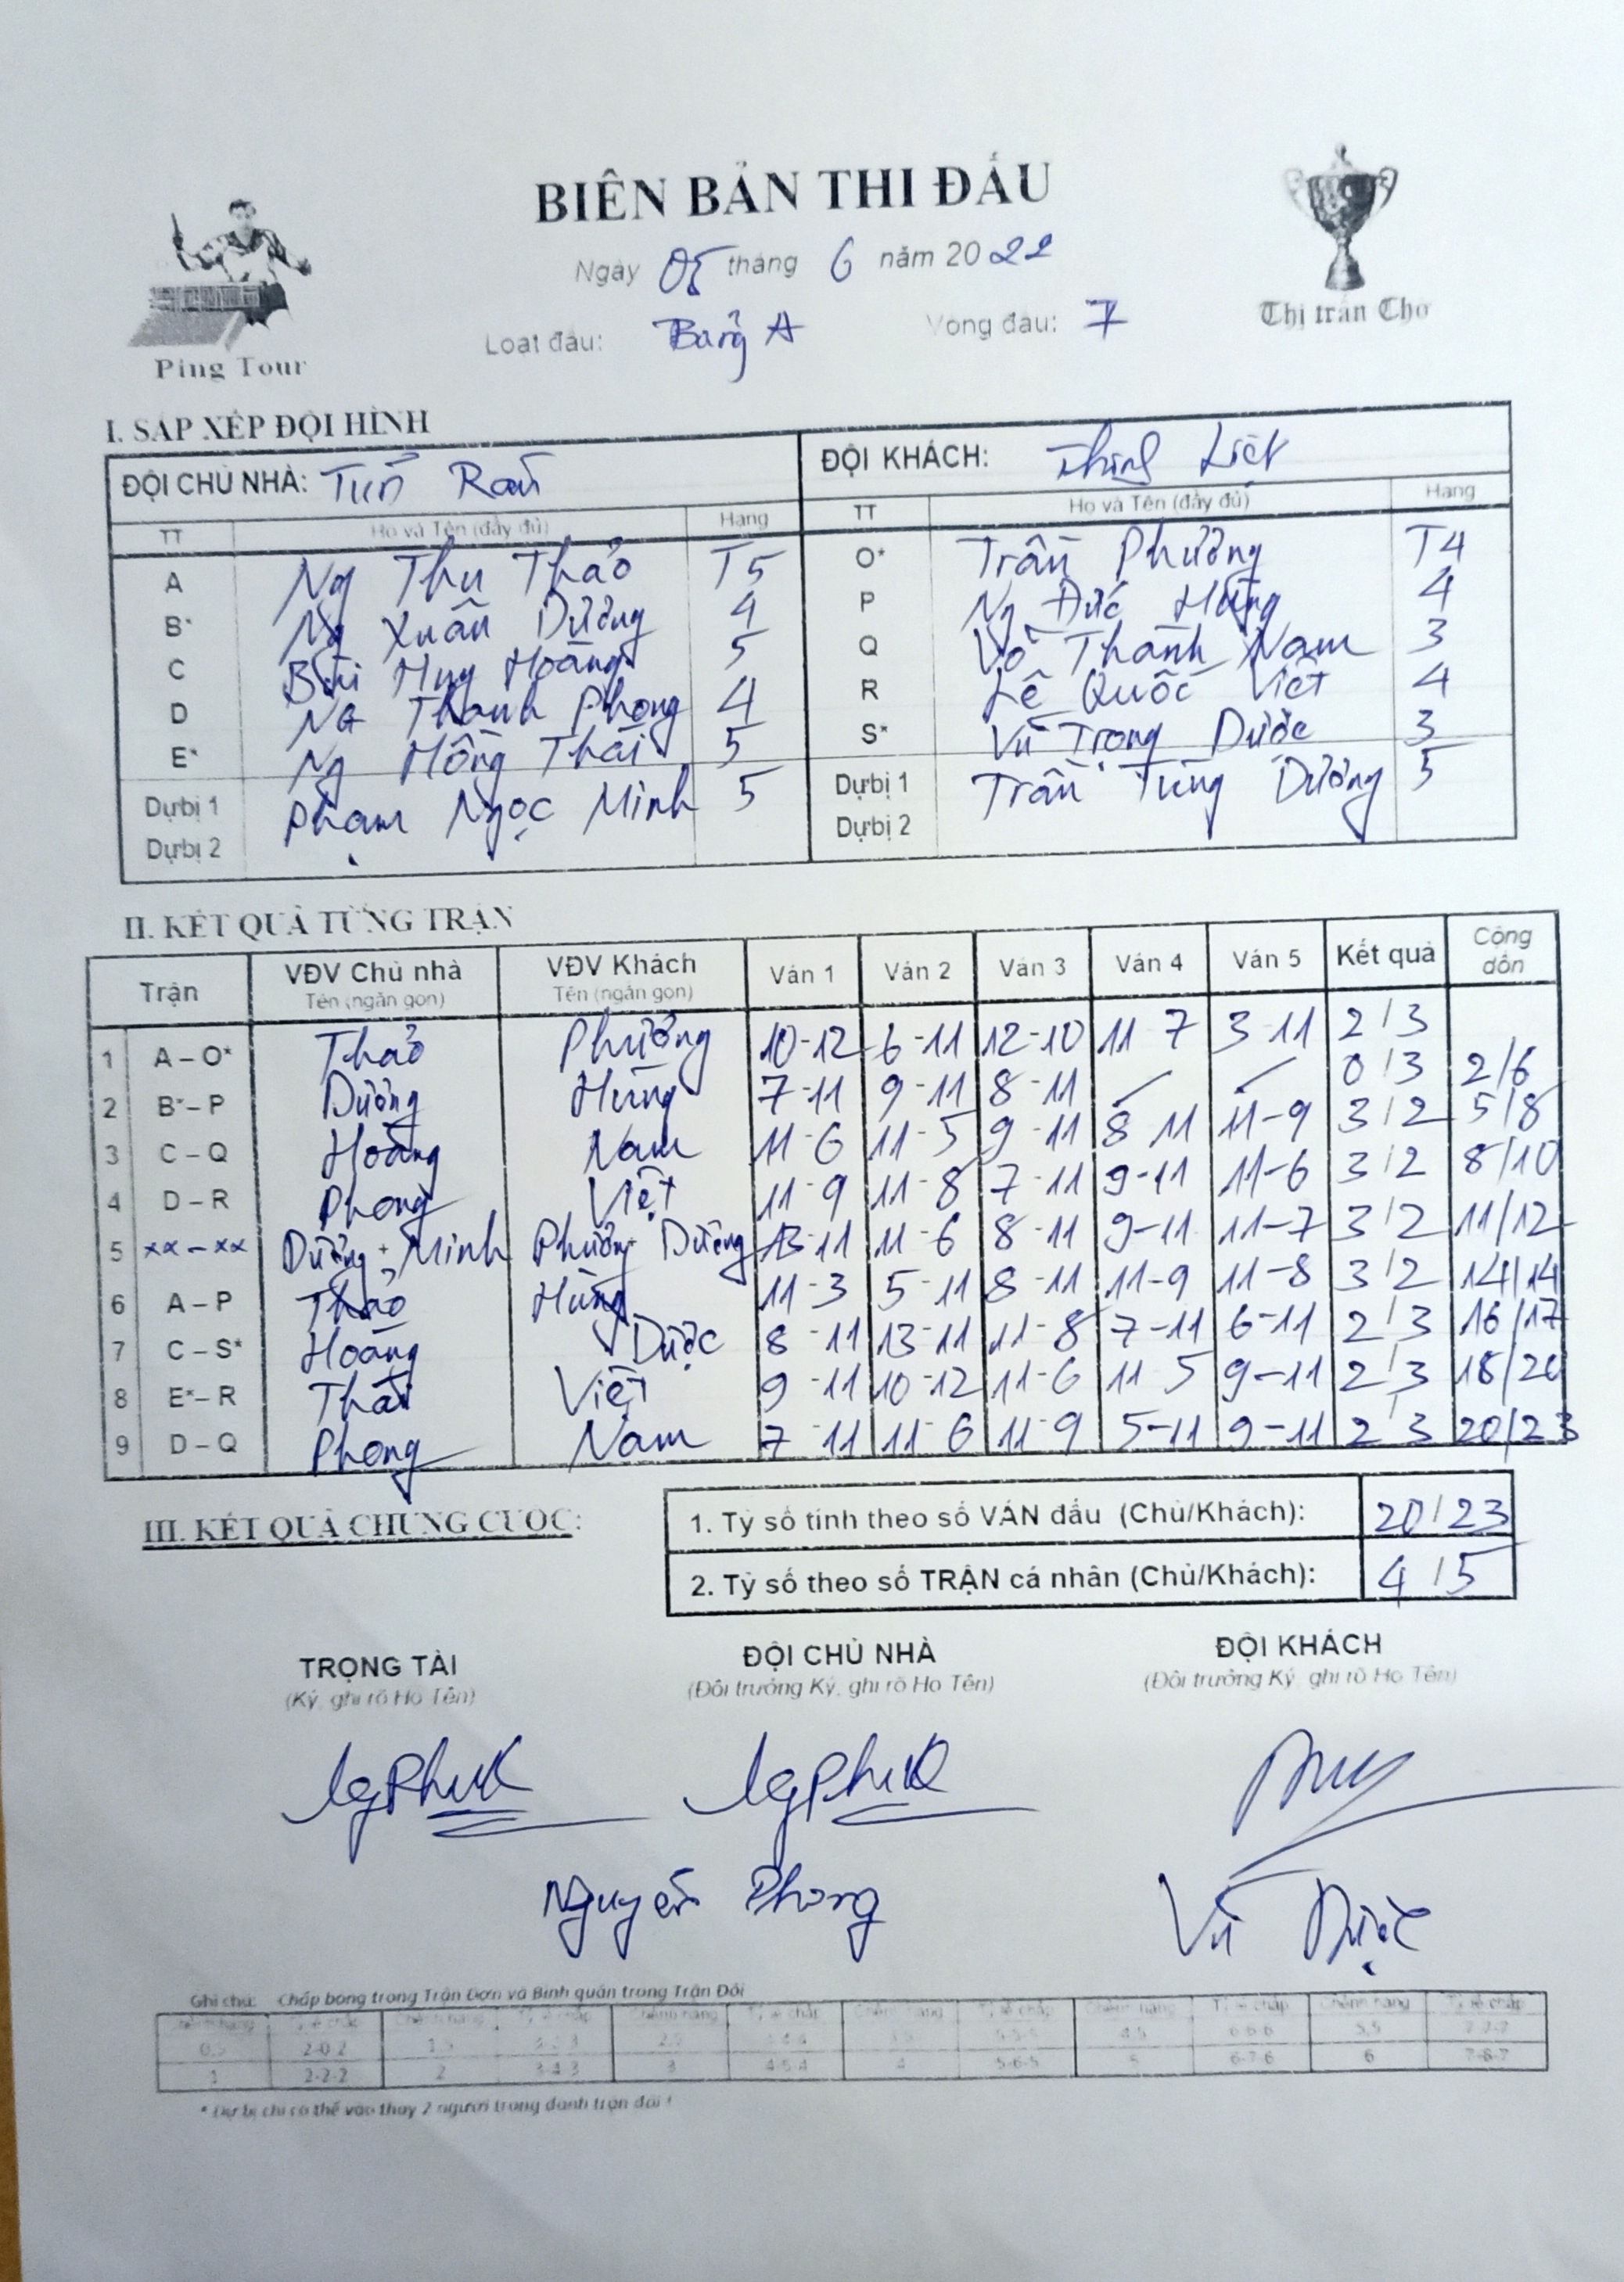 BIÊN BẢN THI ĐẤU
Ngày 05 tháng 6 năm 2022
Loạt đấu: Bảng A Vòng đấu: 7
Ping Tour
Thị trấn Chờ
I. SẮP XẾP ĐỘI HÌNH
ĐỘI CHỦ NHÀ: ĐỘI KHÁCH: Liệt
TT Họ và Tên (đầy đủ) Hạng TT Họ và Tên (đầy đủ) Hạng
A Ng Thu Thảo T5 O* Trần Phương T4
B* Ng Xuân Dương 4 P Ng Đức Hùng 4
C Bùi Huy Hoàng 5 Q Võ Thành Nam 3
D NG Thanh Phong 4 R Lê Quốc Việt 4
E* Ng Hồng Thái 5 S* Vũ Trọng Dược 3
Dự bị 1 Phạm Ngọc Minh 5 Dự bị 1 Trần Tùng Dương 5
Dự bị 2 Dự bị 2
II. KẾT QUẢ TỪNG TRẬN
Trận VĐV Chủ nhà VĐV Khách Ván 1 Ván 2 Ván 3 Ván 4 Ván 5 Kết quả Cộng dồn
Tên (ngắn gọn) Tên (ngắn gọn)
1 A – O* Thảo Phương 10-12 6-11 12-10 11 7 3-11 2/3
2 B* – P Dương Hùng 7-11 9-11 8-11 0/3 2/6
3 C – Q Hoàng Nam 11-6 11-5 9-11 8 11 11-9 3/2 5/8
4 D – R Phong Việt 11-9 11-8 7-11 9-11 11-6 3/2 8/10
5 xx – xx Dương + Minh Phương + Dương 13-11 11-6 8-11 9-11 11-7 3/2 11/12
6 A – P Thảo Hùng 11-3 5-11 8-11 11-9 11-8 3/2 14/14
7 C – S* Hoàng Dược 8-11 13-11 11-8 7-11 6-11 2/3 16/17
8 E* – R Thái Việt 9-11 10-12 11-6 11 5 9-11 2/3 18/20
9 D – Q Phong Nam 7-11 11-6 11-9 5-11 9-11 2/3 20/23
III. KẾT QUẢ CHUNG CUỘC:
1. Tỷ số tính theo số VÁN đấu (Chủ/Khách): 20/23
2. Tỷ số theo số TRẬN cá nhân (Chủ/Khách): 4/5
TRỌNG TÀI ĐỘI CHỦ NHÀ ĐỘI KHÁCH
(Ký, ghi rõ Họ Tên) (Đội trưởng Ký, ghi rõ Họ Tên) (Đội trưởng Ký, ghi rõ Họ Tên)
Nguyễn Phong Vũ Dược
Ghi chú: Chấp bóng trong Trận Đơn và Bình quân trong Trận Đôi
Chênh hạng Tỷ lệ chấp Chênh hạng Tỷ lệ chấp Chênh hạng Tỷ lệ chấp Chênh hạng Tỷ lệ chấp Chênh hạng Tỷ lệ chấp Chênh hạng Tỷ lệ chấp
0,5 2-0-2 1,5 4,5 6-6-6 5,5 7-7-7
1 2-2-2 2 3-4-3 3 4-5-4 4 5-6-5 5 6-7-6 6 7-8-7
* Dự bị chỉ có thể vào thay 2 người trong danh trận đôi !